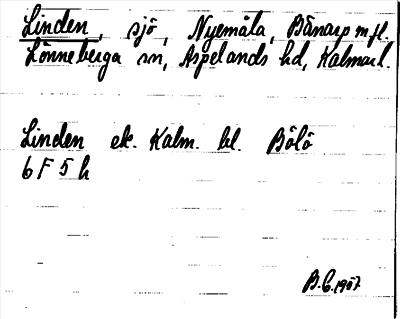 Linden, sjö, Nyemåla, Bänarp m fl.
Lönneberga sn, Aspelands hd, Kalmar l.
Linden ek. Kalm. bl. Bölö
6 F 5 h
B.C. 1957